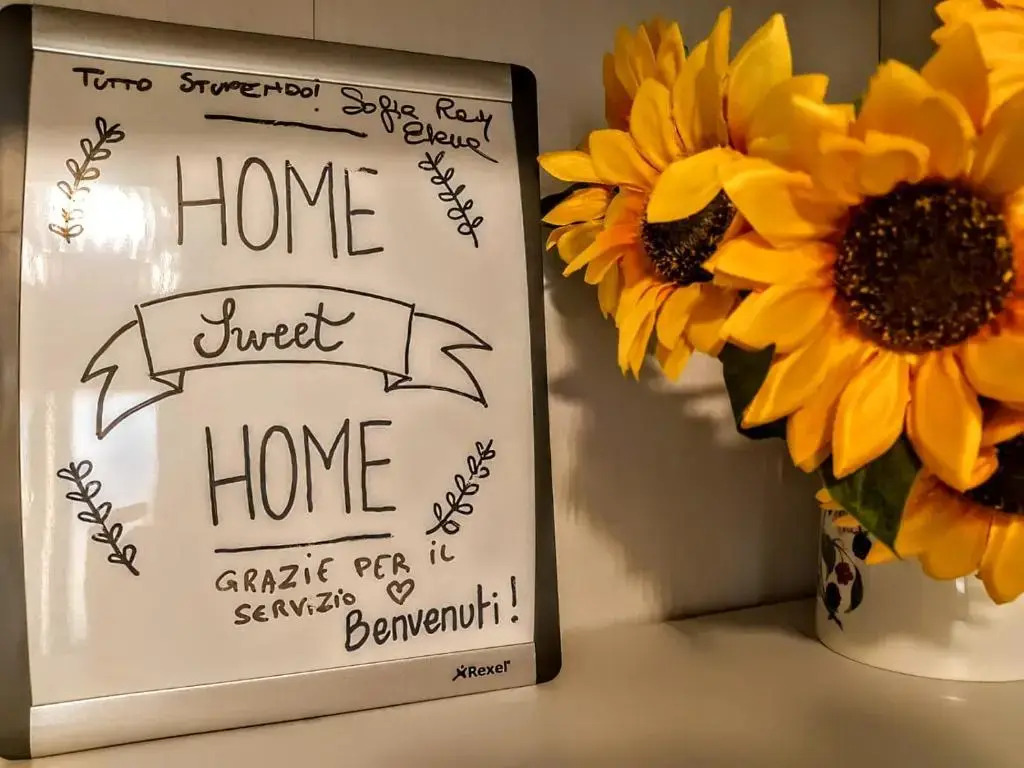 TUTTO STUPENDO! Sofia Ray
Elena
HOME
Sweet
HOME
GRAZIE PER IL
SERVIZIO
Benvenuti!
Rexel